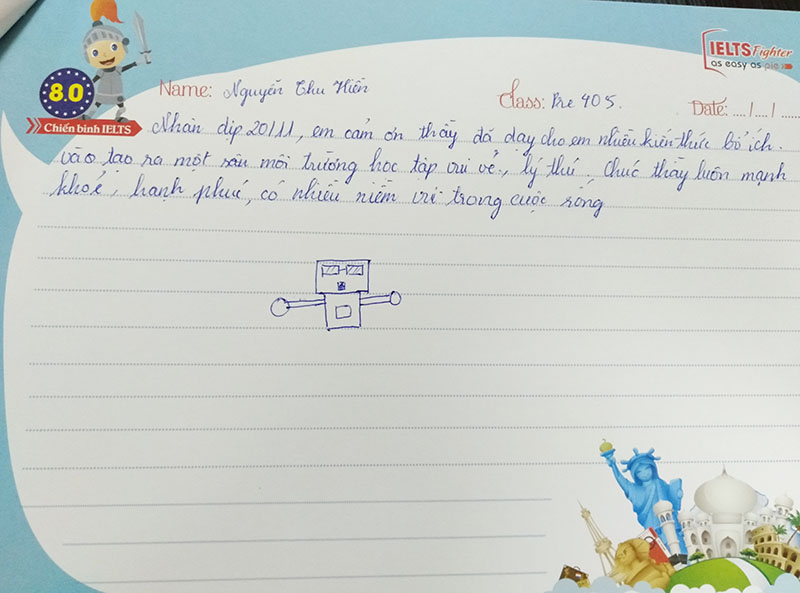 IELTS Fighter
as easy as pie
8.0
Chiến binh IELTS
Name: Nguyễn Thu Hiền
Class: Pre 405.
Date: ..../..../......
Nhân dịp 20/11, em cảm ơn thầy đã dạy cho em nhiều kiến thức bổ ích.
vào tạo ra một sân môi trường học tập vui vẻ, lý thú. Chúc thầy luôn mạnh
khoẻ, hạnh phúc, có nhiều niềm vui trong cuộc sống